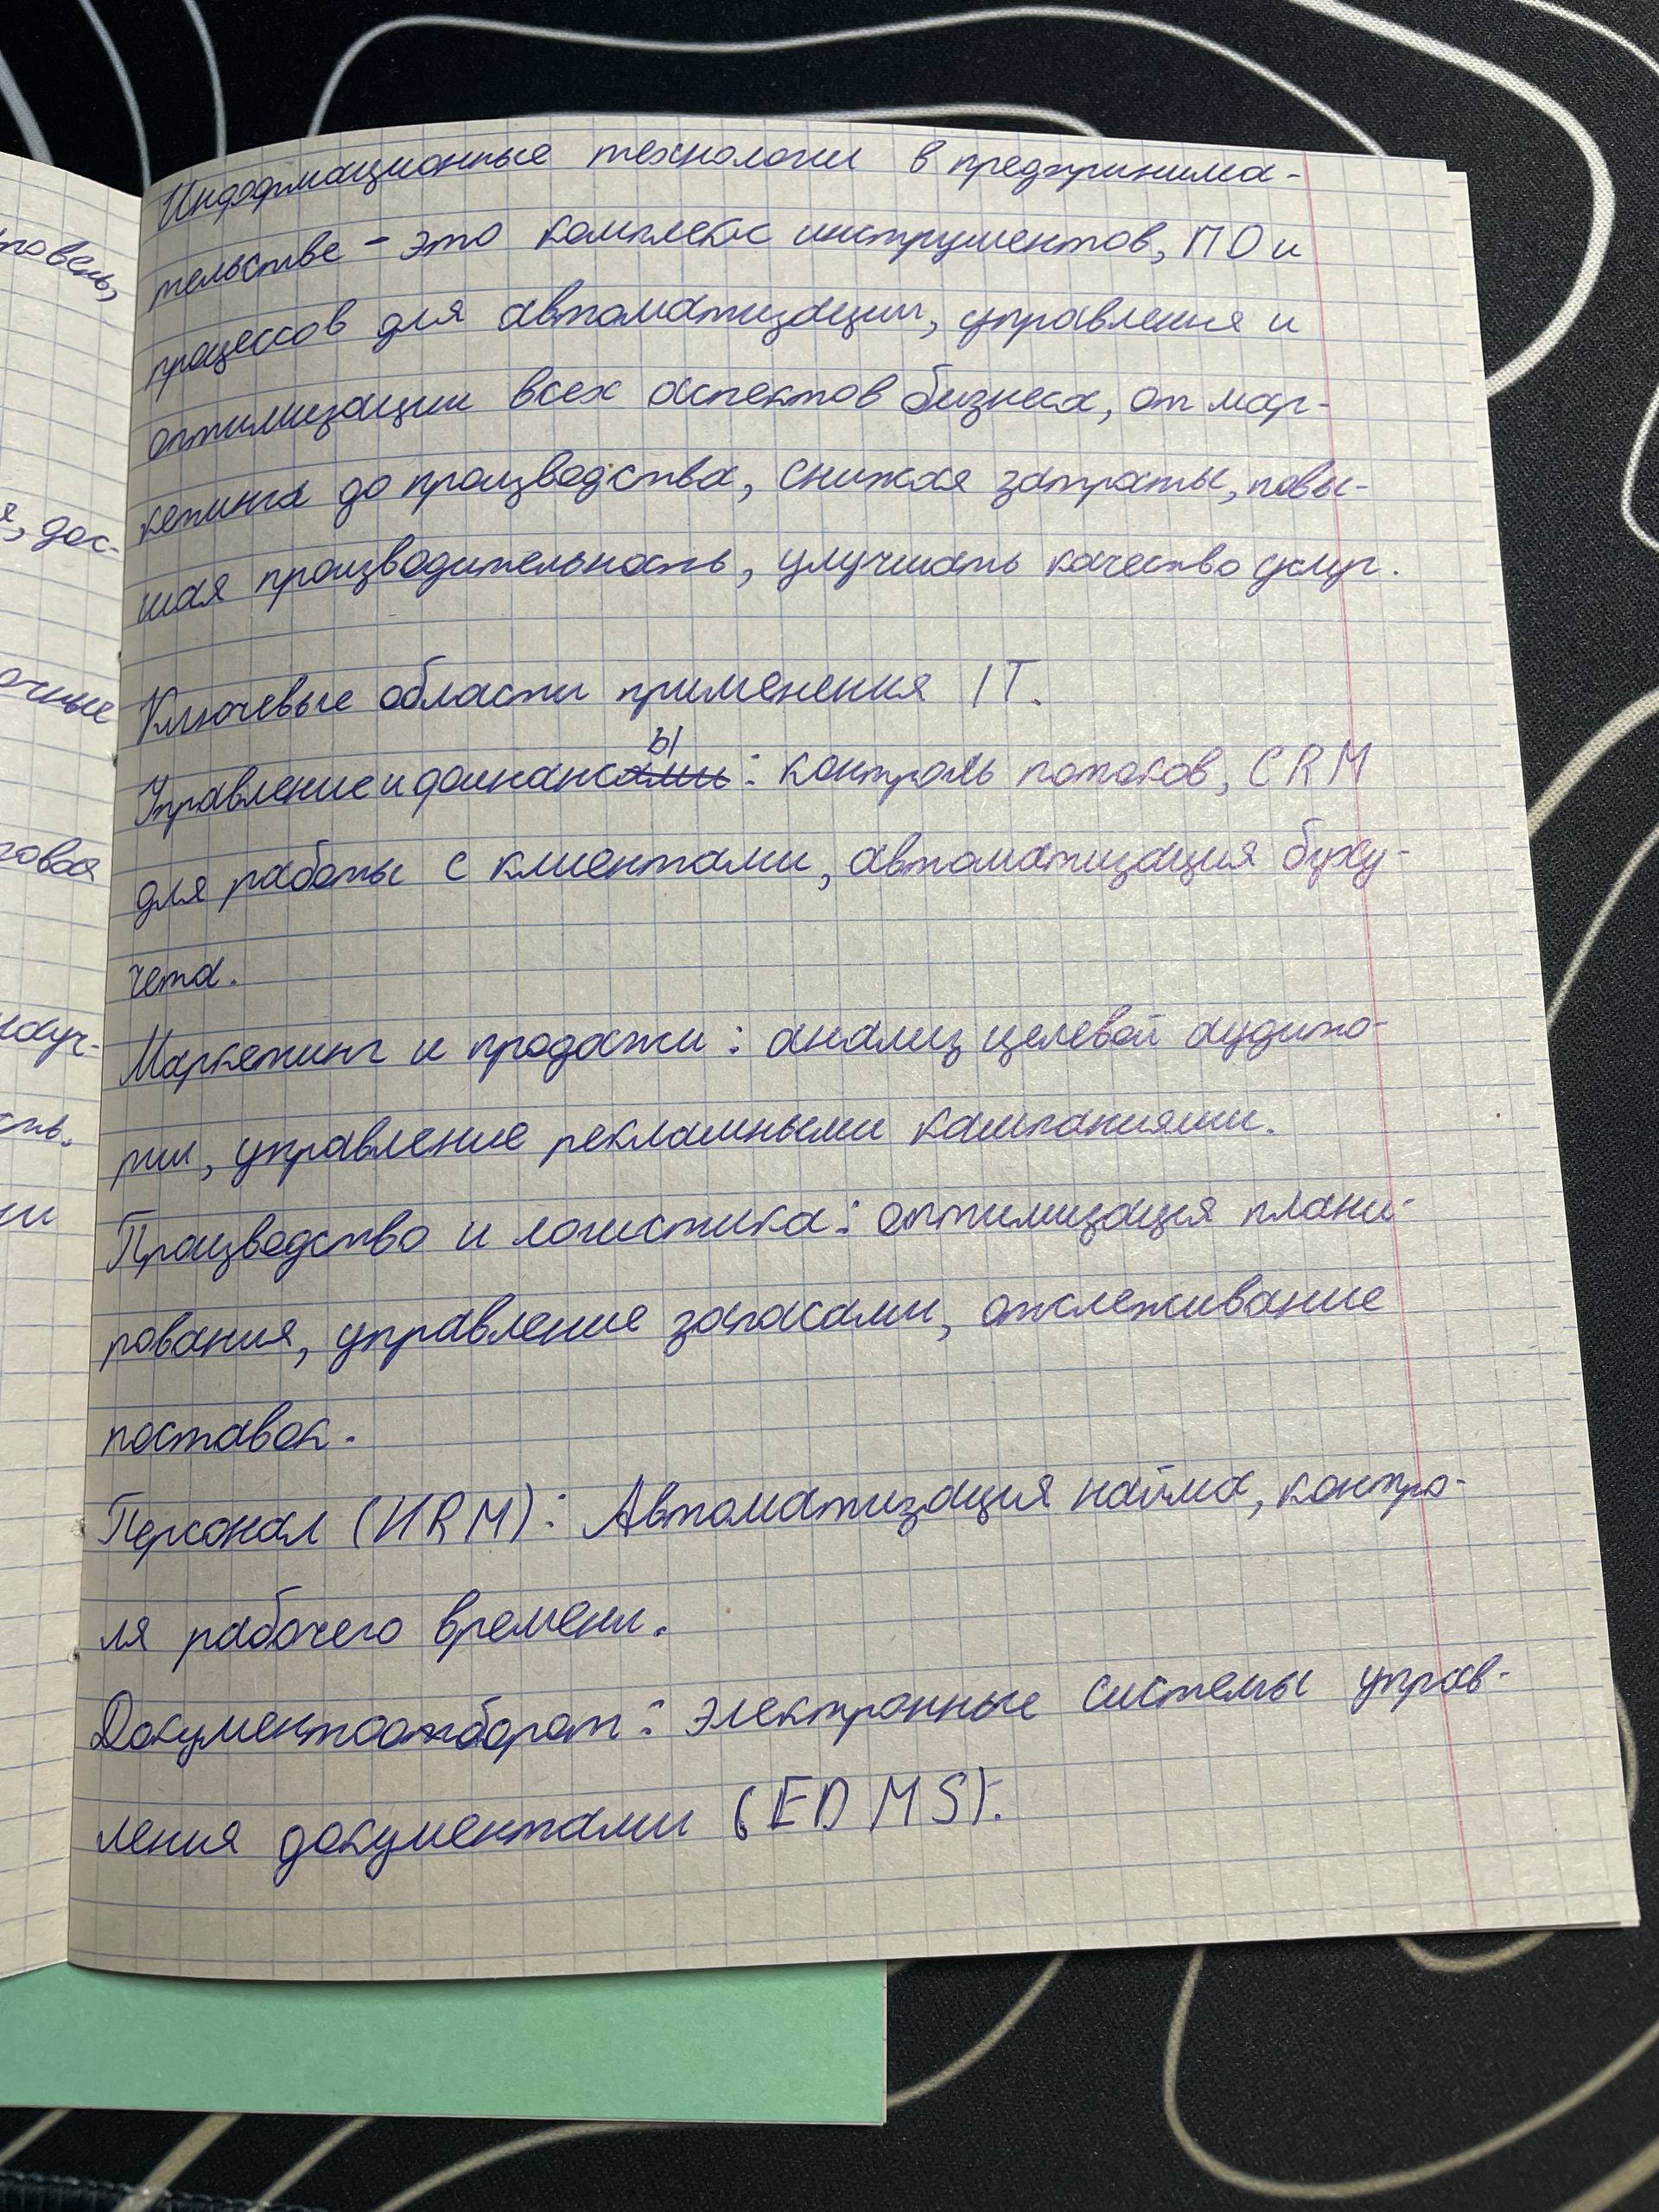 Информационные технологии в предпринима-
тельстве - это комплекс инструментов, ПО и
процессов для автоматизации, управления и
оптимизации всех аспектов бизнеса, от мар-
кетинга до производства, снижая затраты, повы-
шая производительность, улучшать качество услуг.
Ключевые области применения IT.
Управление и финансы: контроль потоков, CRM
для работы с клиентами, автоматизация буху-
чета.
Маркетинг и продажи: анализ целевой аудито-
рии, управление рекламными кампаниями.
Производство и логистика: оптимизация плани-
рования, управление запасами, отслеживание
поставок.
Персонал (HRM): Автоматизация найма, контро-
ля рабочего времени.
Документооборот: электронные системы управ-
ления документами (EDMS).
я, дос-
очные
говая
науч-
сть.
ии